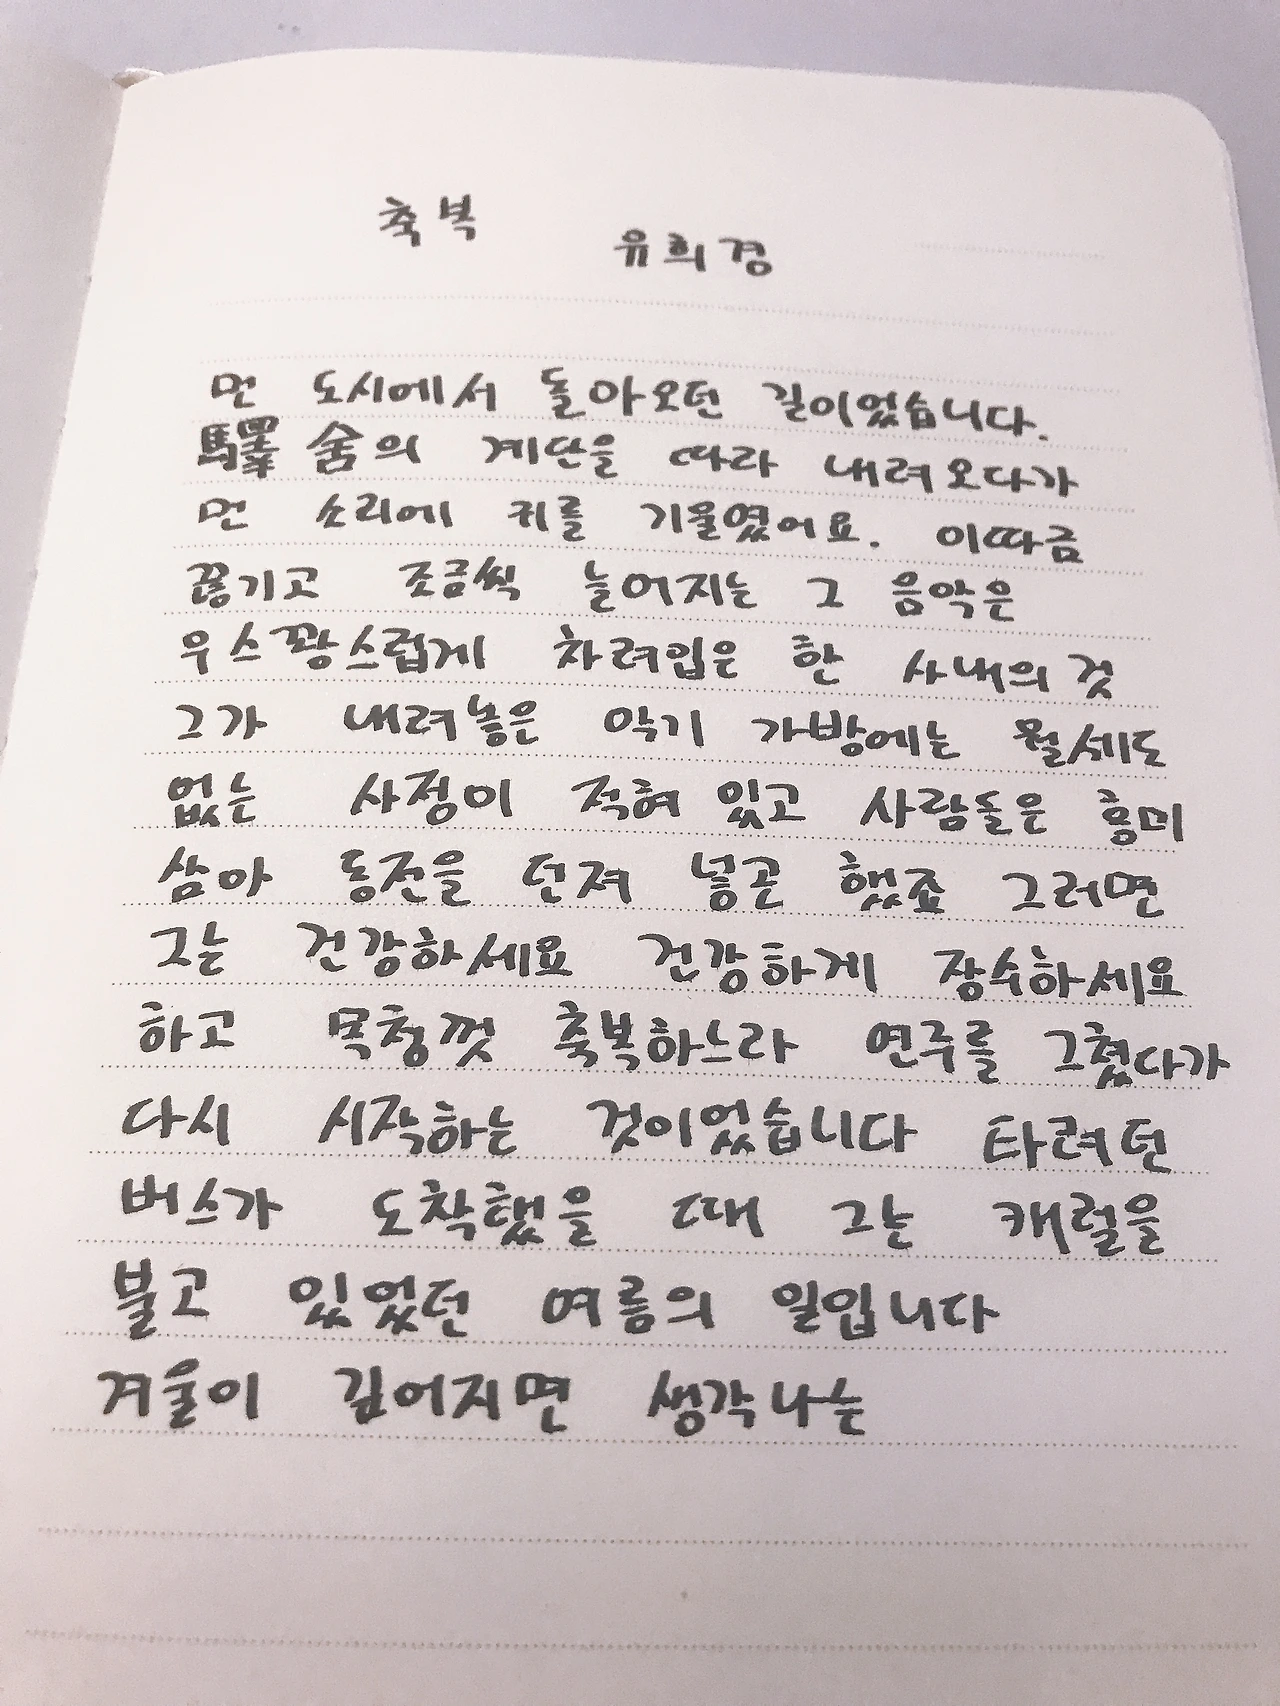 축복
유희경
먼 도시에서 돌아오던 길이었습니다.
驛舍의 계단을 따라 내려오다가
먼 소리에 귀를 기울였어요. 이따금
끊기고 조금씩 늘어지는 그 음악은
우스꽝스럽게 차려입은 한 사내의 것
그가 내려놓은 악기 가방에는 뭘세도
없는 사정이 적혀 있고 사람들은 흥미
삼아 동전을 던져 넣곤 했죠 그러면
그는 건강하세요 건강하게 장수하세요
하고 목청껏 축복하느라 연주를 그쳤다가
다시 시작하는 것이었습니다 타려던
버스가 도착했을 때 그는 캐럴을
불고 있었던 여름의 일입니다
겨울이 깊어지면 생각나는